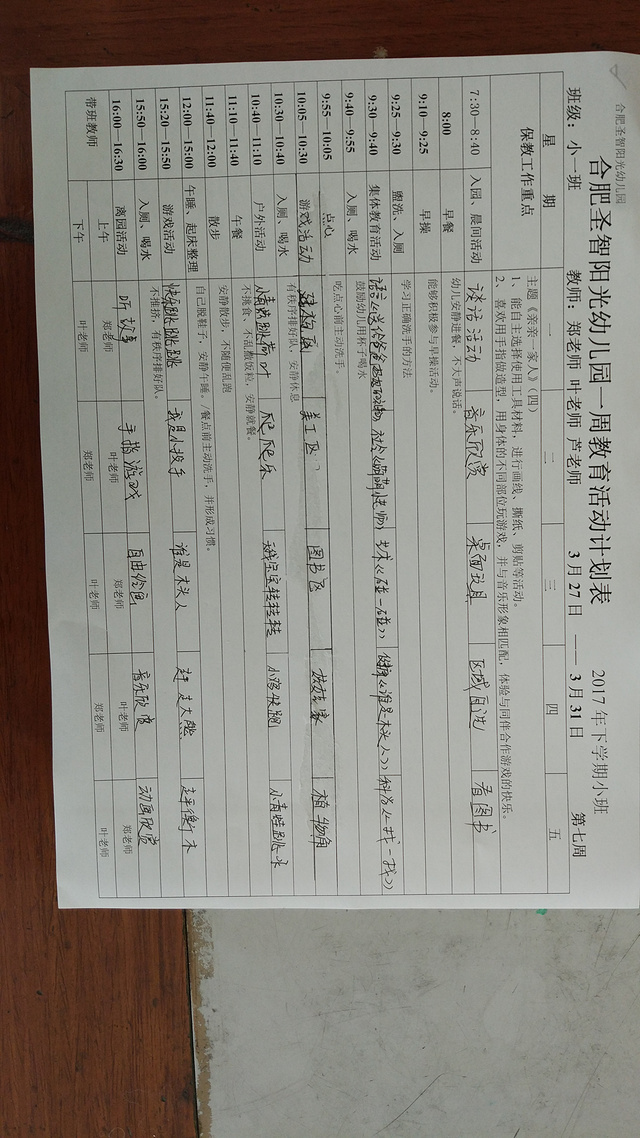 合肥圣智阳光幼儿园
合肥圣智阳光幼儿园一周教育活动计划表 2017年下学期小班
班级：小一班 教师：郑老师 叶老师 芦老师 3月27日 —— 3月31日 第七周
星 期 一 二 三 四 五
保教工作重点 主题《亲亲一家人》（四）
1、能自主选择使用工具材料，进行画线、撕纸、剪贴等活动。
2、喜欢用手指做造型，用身体的不同部位玩游戏，并与音乐形象相匹配，体验与同伴合作游戏的快乐。
7:30—8:40 入园、晨间活动 谈话活动 音乐欣赏 桌面玩具 区域自选 看图书
8:00 早餐 幼儿安静进餐，不大声说话。
9:10—9:25 早操 能够积极参与早操活动。
9:25—9:30 盥洗、入厕 学习正确洗手的方法
9:30—9:40 集体教育活动 语言 《碰一碰》 健康《谁是木头人》 科学《找一找》
9:40—9:55 入厕、喝水 鼓励幼儿用杯子喝水
9:55—10:05 点心 吃点心前主动洗手。
10:05—10:30 游戏活动 建构区 美工区 图书区 娃娃家 植物角
10:30—10:40 入厕、喝水 有秩序排好队、安静休息
10:40—11:10 户外活动 小青蛙跳荷叶 爬爬乐 蛋宝宝转转转 小鸡快跑 小青蛙跳水
11:10—11:40 午餐 不挑食、不乱撒饭粒，安静就餐。
11:40—12:00 散步 安静散步，不随便乱跑
12:00—15:00 午睡、起床整理 自己脱鞋子，安静午睡。/餐点前主动洗手，并形成习惯。
15:20—15:50 游戏活动 快乐跳跳跳 我是小投手 谁是木头人 赶走大熊 走平衡木
15:50—16:00 入厕、喝水 不推挤，有秩序排好队、
16:00—16:30 离园活动 听故事 手指游戏 自由绘画 音乐欣赏 动画欣赏
带班教师 上午 郑老师 叶老师 郑老师 叶老师 郑老师
下午 叶老师 郑老师 叶老师 郑老师 叶老师